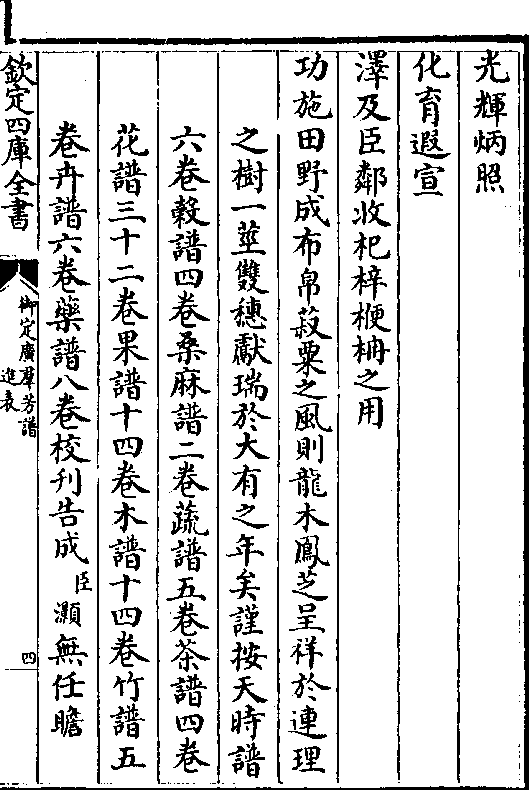 光輝炳照
化育遐宣
澤及臣鄰收杞梓楩柟之用
功施田野成布帛菽粟之風則龍木鳳芝呈祥於連理
之樹一莖雙穗獻瑞於大有之年矣謹按天時譜
六卷穀譜四卷桑麻譜二卷蔬譜五卷茶譜四卷
花譜三十二卷果譜十四卷木譜十四卷竹譜五
卷卉譜六卷藥譜八卷校刋告成臣灝無任瞻
欽定四庫全書
御定廣羣芳譜
進表
四